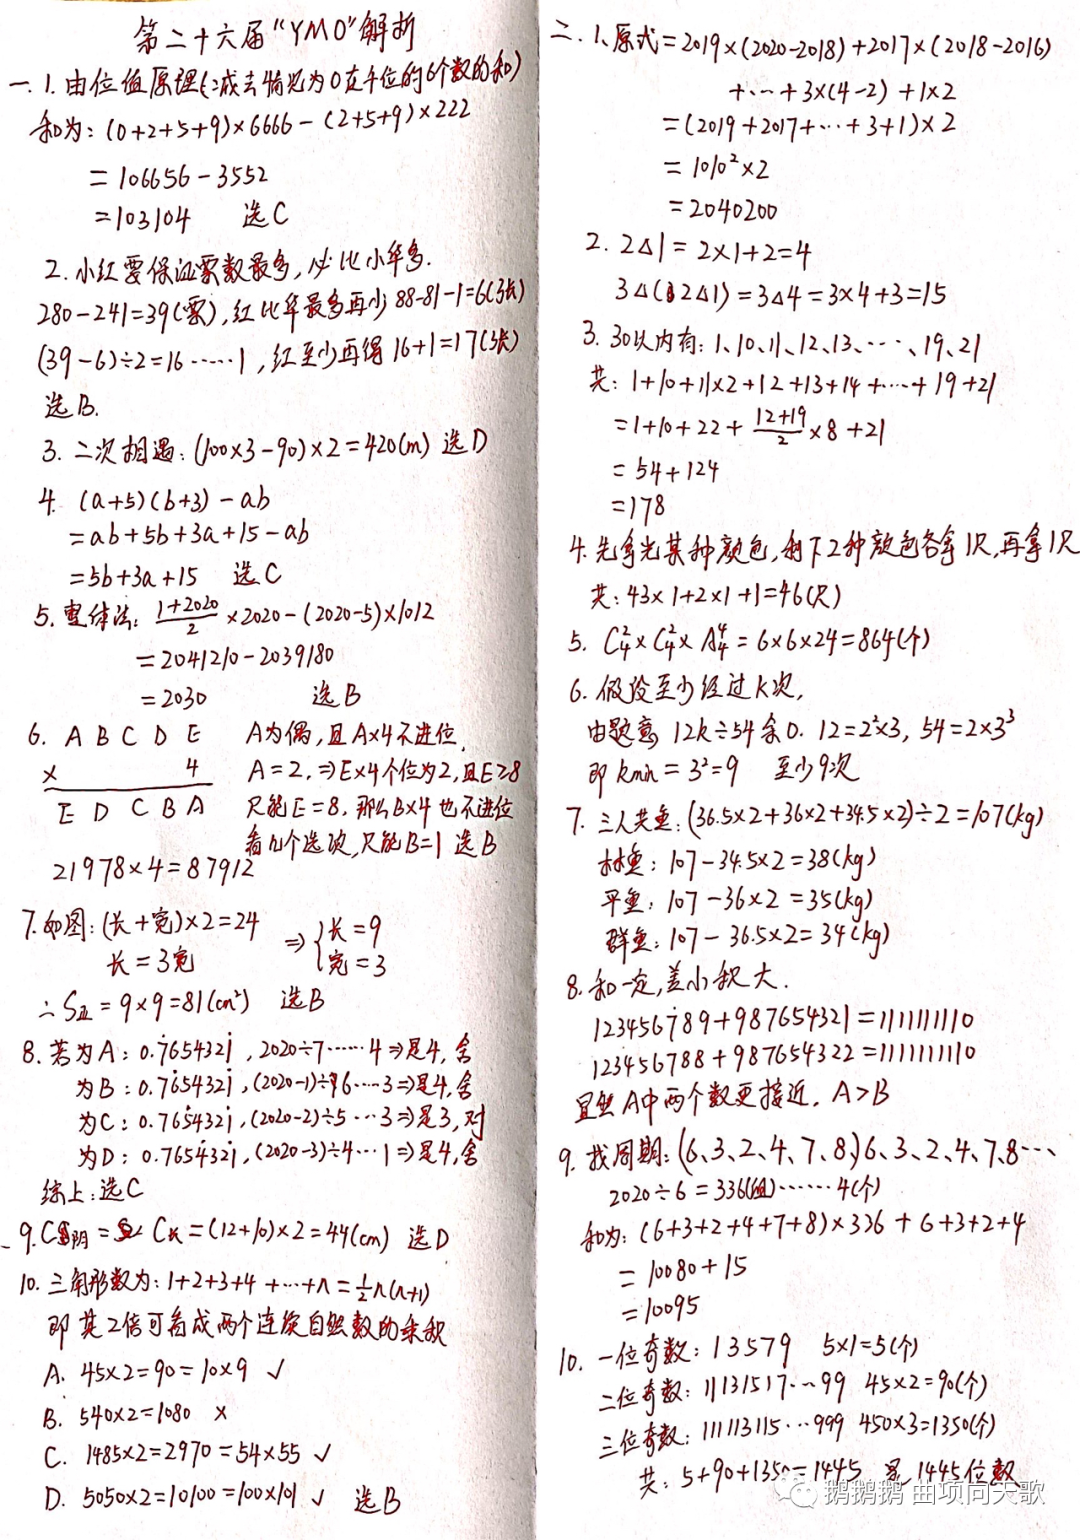 第二十六届“YMO”解析
一. 1. 由位值原理(减去情况为0在千位的6个数的和)
和为: (0+2+5+9)×6666-(2+5+9)×222
=106656-3552
=103104 选C
2. 小红要保证票数最多, 必比小华多.
280-241=39(票), 红比华最多再少88-81-1=6(张)
(39-6)÷2=16……1, 红至少再得16+1=17(张)
选B.
3. 二次相遇: (100×3-90)×2=420(m) 选D
4. (a+5)(b+3)-ab
=ab+5b+3a+15-ab
=5b+3a+15 选C
5. 整体法: (1+2020)/2×2020-(2020-5)×1012
=2041210-2039180
=2030 选B
6. A B C D E A为偶, 且A×4不进位,
× 4 A=2, ⇒E×4个位为2, 且E≥8
E D C B A 只能E=8, 那么B×4也不进位
看几个选项, 只能B=1 选B
21978×4=87912
7. 如图: (长+宽)×2=24 ⇒ {长=9
长=3宽 宽=3
∴S正=9×9=81(cm²) 选B
8. 若为A: 0.7̇65432i̇, 2020÷7……4⇒是4, 舍
为B: 0.76̇5432i̇, (2020-1)÷6…3⇒是4, 舍
为C: 0.765̇432i̇, (2020-2)÷5…3⇒是3, 对
为D: 0.7654̇32i̇, (2020-3)÷4…1⇒是4, 舍
综上: 选C
9. C阴=C长=(12+10)×2=44(cm) 选D
10. 三角形数为: 1+2+3+4+…+n=½n(n+1)
即其2倍可看成两个连续自然数的乘积
A. 45×2=90=10×9 ✓
B. 540×2=1080 ×
C. 1485×2=2970=54×55 ✓
D. 5050×2=10100=100×101 ✓ 选B
二. 1. 原式=2019×(2020-2018)+2017×(2018-2016)
+…+3×(4-2)+1×2
=(2019+2017+…+3+1)×2
=1010²×2
=2040200
2. 2△1=2×1+2=4
3△(2△1)=3△4=3×4+3=15
3. 30以内有: 1、10、11、12、13、…、19、21
共: 1+10+11×2+12+13+14+…+19+21
=1+10+22+(12+19)/2×8+21
=54+124
=178
4. 先拿光某种颜色, 剩下2种颜色各拿1只, 再拿1只
共: 43×1+2×1+1=46(只)
5. C₄²×C₄²×A₄⁴=6×6×24=864(个)
6. 假设至少经过k次,
由题意 12k÷54余0. 12=2²×3, 54=2×3³
即kmin=3²=9 至少9次
7. 三人共重: (36.5×2+36×2+34.5×2)÷2=107(kg)
林重: 107-34.5×2=38(kg)
平重: 107-36×2=35(kg)
群重: 107-36.5×2=34(kg)
8. 和一定, 差小积大.
123456789+987654321=1111111110
123456788+987654322=1111111110
显然A中两个数更接近. A>B
9. 找周期: (6、3、2、4、7、8)6、3、2、4、7、8…、
2020÷6=336(组)……4(个)
和为: (6+3+2+4+7+8)×336+6+3+2+4
=10080+15
=10095
10. 一位奇数: 13579 5×1=5(个)
二位奇数: 11131517…99 45×2=90(个)
三位奇数: 111113115…999 450×3=1350(个)
共: 5+90+1350=1445 是1445位数
鹅鹅鹅 曲项向天歌